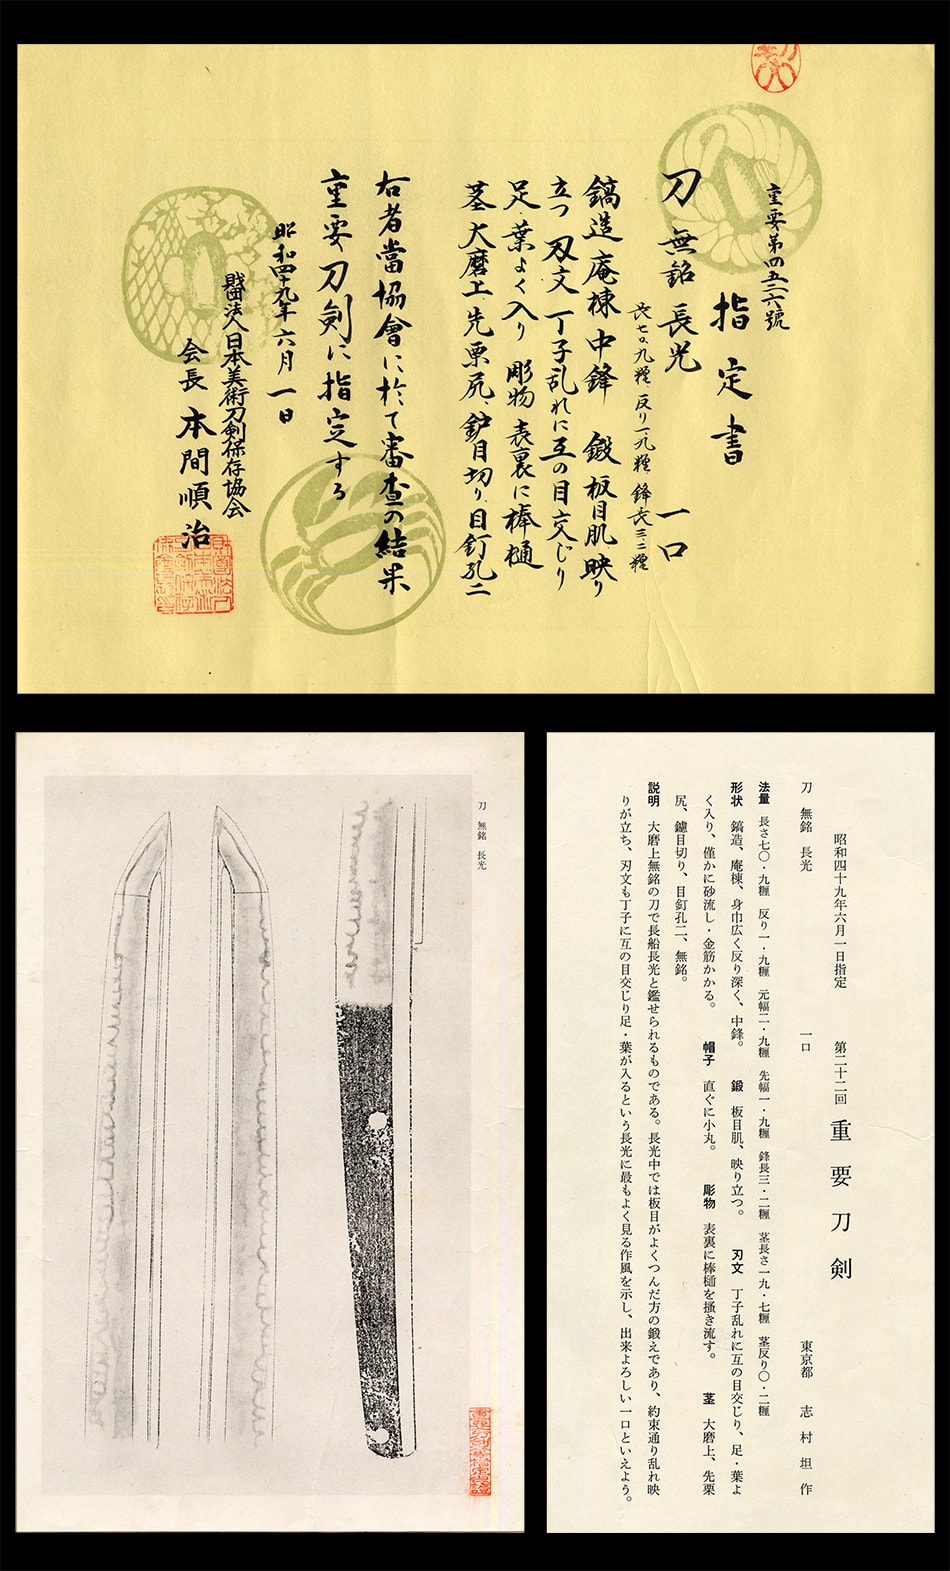 重要第四五二六號
指定書
刀 無銘 長光 一口
長七〇、九糎 反り一、九糎 鋒長三、二糎
鎬造 庵棟 中鋒 鍛 板目肌 映り
立つ 刃文 丁子乱れに互の目交じり
足・葉よく入り 彫物 表裏に棒樋
茎 大磨上 先栗尻 鈩目切り 目釘孔二
右者當協會に於て審査の結果
重要刀剣に指定する
昭和四十九年六月一日
財団法人日本美術刀剣保存協会
会長 本間順治
刀 無銘 長光
昭和四十九年六月一日指定 第二十二回 重要刀剣
刀 無銘 長光 一口 東京都 志村坦作
法量 長さ七〇・九糎 反り一・九糎 元幅二・九糎 先幅一・九糎 鋒長三・二糎 茎長さ一九・七糎 茎反り〇・二糎
形状 鎬造、庵棟、身巾広く反り深く、中鋒。 鍛 板目肌、映り立つ。 刃文 丁子乱れに互の目交じり、足・葉よ
く入り、僅かに砂流し・金筋かかる。 帽子 直ぐに小丸。 彫物 表裏に棒樋を掻き流す。 茎 大磨上、先栗
尻、鑢目切り、目釘孔二、無銘。
説明 大磨上無銘の刀で長船長光と鑑せられるものである。長光中では板目がよくつんだ方の鍛えであり、約束通り乱れ映
りが立ち、刃文も丁子に互の目交じり足・葉が入るという長光に最もよく見る作風を示し、出来よろしい一口といえよう。